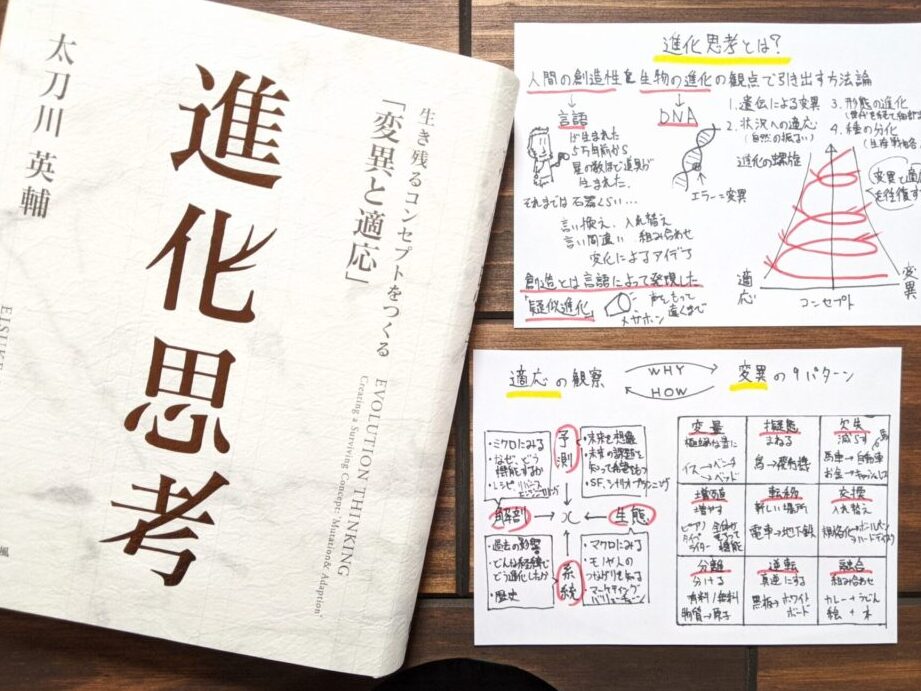 太刀川 英輔
進化思考
生き残るコンセプトをつくる
「変異と適応」
EVOLUTION THINKING
Creating a Surviving Concept: "Mutation & Adaption"
EISUKE
進化思考とは?
人間の創造性を生物の進化の観点で引き出す方法論
言語
が生まれた
5万年前から
星の数ほど道具が
生まれた.
それまでは石器くらい…
DNA
エラー=変異
1.遺伝による変異
2.状況への適応
(自然の振るい)
3.形態の進化
4.種の分化
進化の螺旋
変異と適応
を往復す
言い換え、入れ替え
言い間違い 組み合わせ
変化によるアイデア
創造とは言語によって発現した
「疑似進化」
メガホン
適応
コンセプト
変異
適応の観察
WHY
HOW
変異の9パターン
・ミクロにみる
・なぜ、どう
機能するか
予測
・未来を想像
・未来の課題を
知って希望をもつ
・SF、シナリオプランニング
解剖
x
生態
・過去の影響
・どんな経緯で
どう進化したか
・歴史
系統
・マクロにみる
・モノや人の
つながりを知る
・マーケティング
バリューチェーン
変量
極端な量に
イス→ベンチ
→ベッド
擬態
まねる
鳥→飛行機
欠失
減らす
馬車→自動車
お金→キャッシュレス
増殖
増やす
転移
新しい場所
電車→地下鉄
交換
入れ替え
分離
分ける
有料/無料
物質→原子
逆転
真逆にする
黒板→ホワイト
ボード
融合
組み合わせ
カレー+うどん